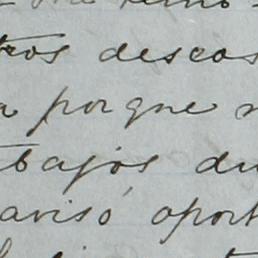 tros deseos
a porque n
abajos du
avisó oport